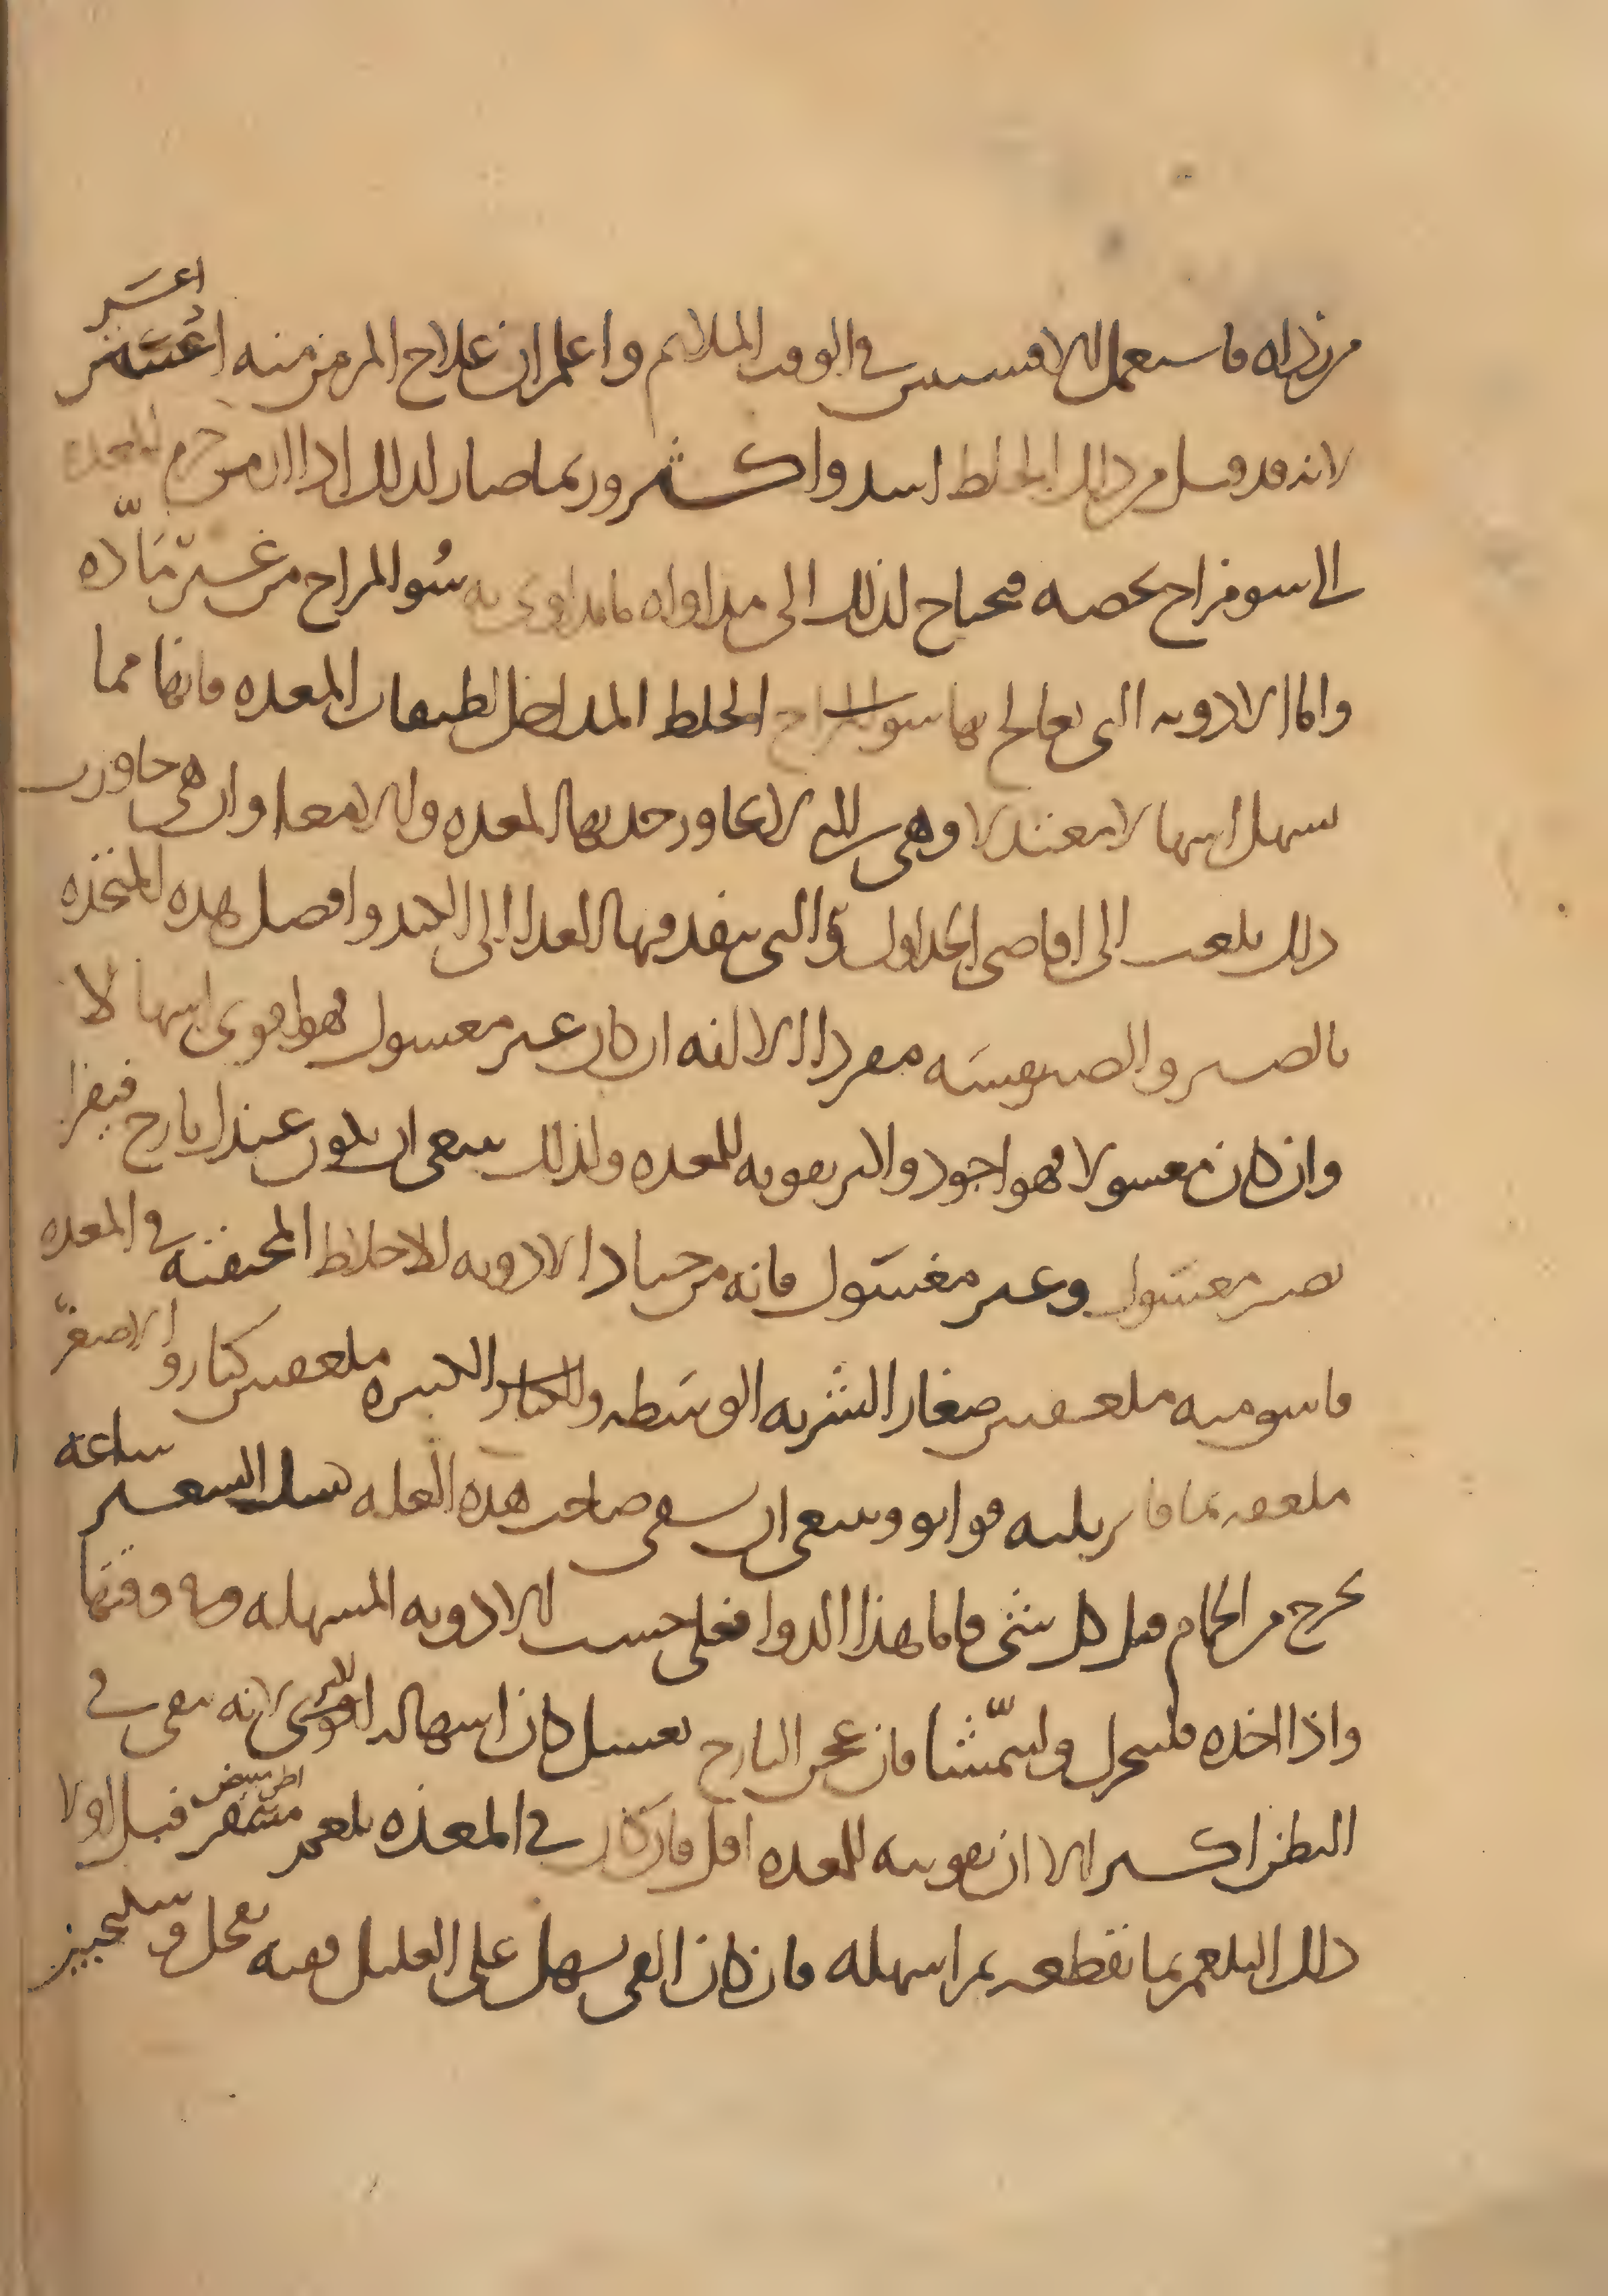 من ذراه فاستعمل الافسنتين في الوقت الملائم واعلم ان علاج المزمن منه اعسر
لانه قد قبل من ذلك الخلط اشد واكثر وربما صار لذلك اذا ازمن جرم المعدة
الى سو مزاج يخصه فيحتاج لذلك الى مداواه ما يداوى به سُو المزاج من غير مَادّه
واما الادويه التي يعالج بها الخلط المداخل لطبقات المعده فانها مما
يسهل اسهالا معتدلا وهي التي لا تجاوز حدتها المعده والامعا وان هي جاوزت
ذلك بلغت الى اقاصي الجداول التي ينفد فيها الغدا الى الكبد وافضل هده المتخذه
بالصبر والصبر نفسَه مفردا الا انه ان كان غير مغسول فهو اقوى اسهالا
وان كان مغسولا فهو اجود واكثر تقويه للمعده ولذلك ينبغي ان يكون عندك ايارج فيقرا
بصبر مغسَول وغير مغسَول فانه من جياد الادويه للاخلاط المحتقنه في المعده
فاسق منه ملعقتين صغار الشربه الوسَطه والكبيره ملعقتين كبار والاصغر
ملعقه بما فا وينبغي ان يسقى صاحب هذه العله الشعير ساعه
يخرج من الحمام قبل كل شي فاما هذا الدوا فعلى حسب الادويه المسهله في وقتها
واذا اخذه فليتحرك وليتمّشا فان عجن اليارج بعسل كان اسهاله اكثر لانه يبقى في
البطن اكثر الا ان تقويته للمعده اقل فان كان في المعده بلغم قبل اولا
ذلك البلغم بما يقطعه ثم اسهله فان كان القي يسهل على العليل فقيه بفجل وسكنجبين